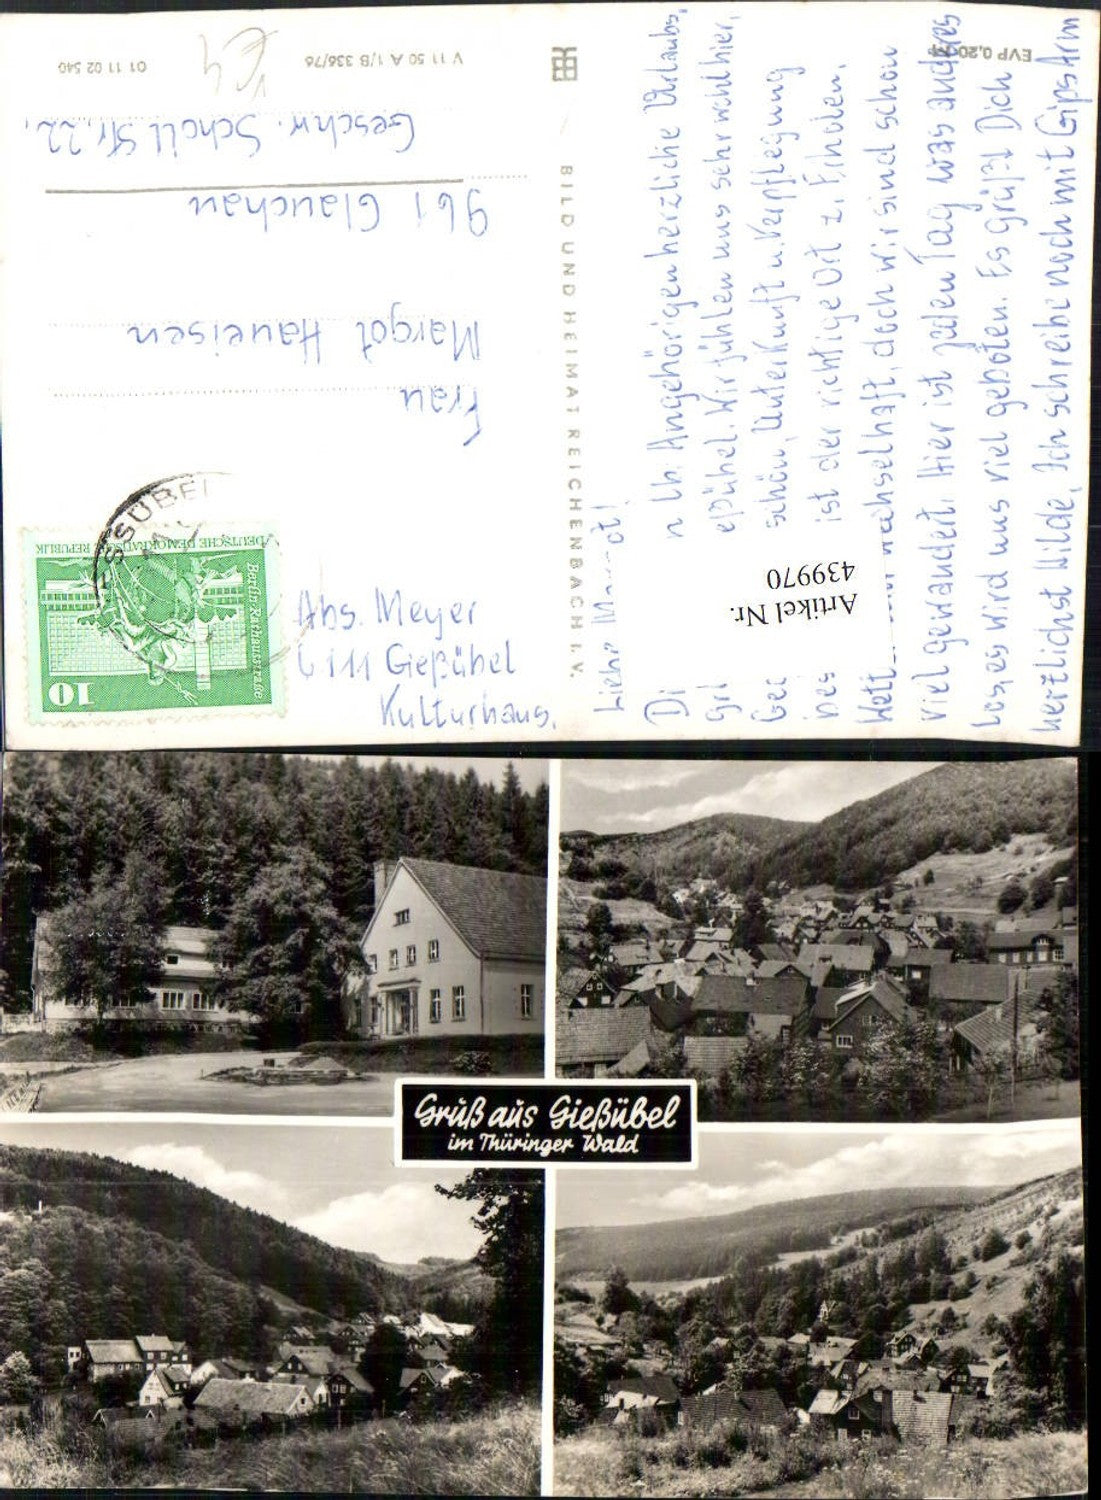 Liebe
n lb. Angehörigen herzliche Urlaubs,
eßübel. Wir fühlen uns sehr wohl hier,
schön, Unterkunft u. Verpflegung
ist der richtige Ort z. Erholen.
wächselhaft, doch wir sind schon
viel gewandert. Hier ist jeden Tag was andres
los, es wird uns viel geboten. Es grüßt Dich
herzlichst Hilde, Ich schreibe noch mit Gips Arm
Artikel Nr.
439970
Abs. Meyer
6111 Gießübel
Kulturhaus.
BILD UND HEIMAT REICHENBACH I.V.
Frau
Margot Haueisen
961 Glauchau
Geschw. Scholl Str. 22,
10
Berlin-Rathausstraße
DEUTSCHE DEMOKRATISCHE REPUBLIK
V 11 50 A 1/B 336/76
01 11 02 540
EVP 0,20
€4
Gruß aus Gießübel
im Thüringer Wald